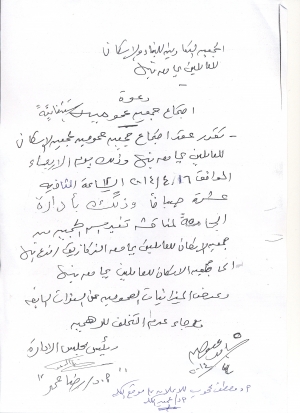 الجمعية التعاونية للبناء والإسكان
للعاملين بجامعة بنها
دعوة
اجتماع جمعية عمومية استثنائية
- تقرر عقد اجتماع جمعية عمومية لجمعية الإسكان
للعاملين بجامعة بنها وذلك يوم الأربعاء
الموافق ٢٠١٤/٤/١٦ الساعة الثانية
عشرة صباحاً وذلك بإدارة
الجامعة لمناقشة تغيير اسم الجمعية من
جمعية الإسكان للعاملين بجامعة الزقازيق فرع بنها
الى جمعية الاسكان للعاملين بجامعة بنها
وعرض الميزانيات العمومية عن السنوات السابقة
وبرجاء عدم التخلف للأهمية
رئيس مجلس الإدارة